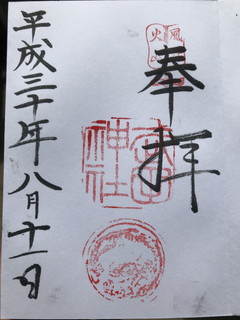 風
火
奉拝
神社
平成三十年八月十一日